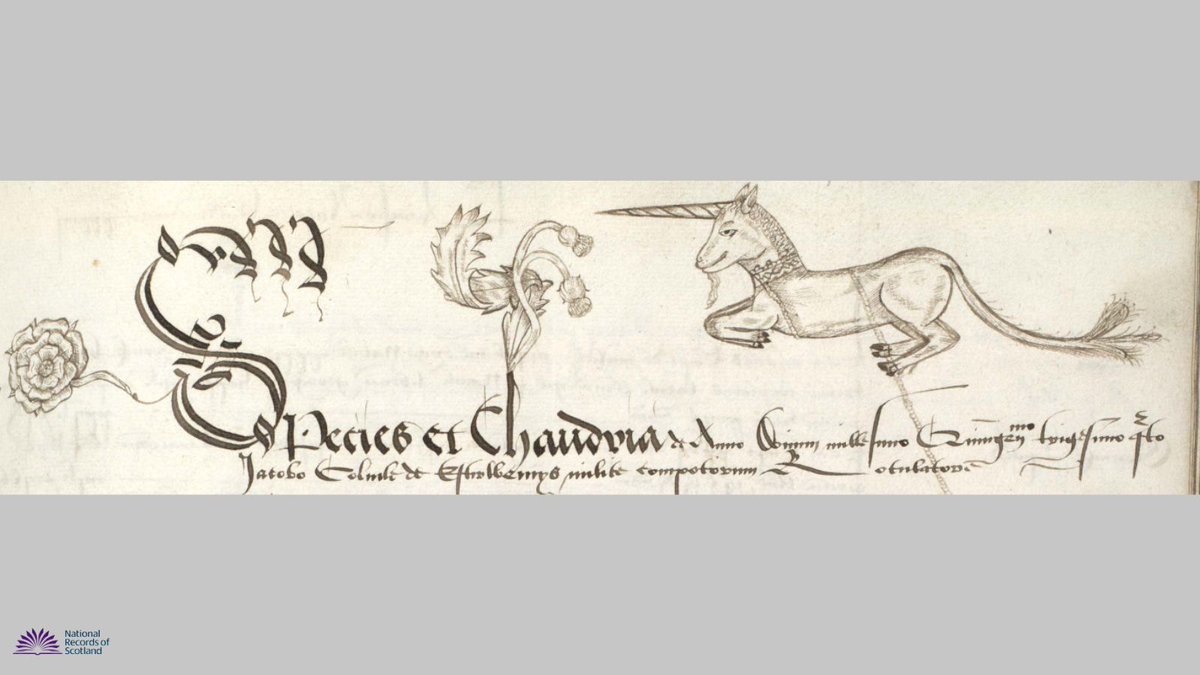 Species et Chaudria de Anno Domini millesimo Quingenmo trigesimo qrto
Jacobo Colvile de Estwemys milite compotorum Rotulatore
National
Records of
Scotland